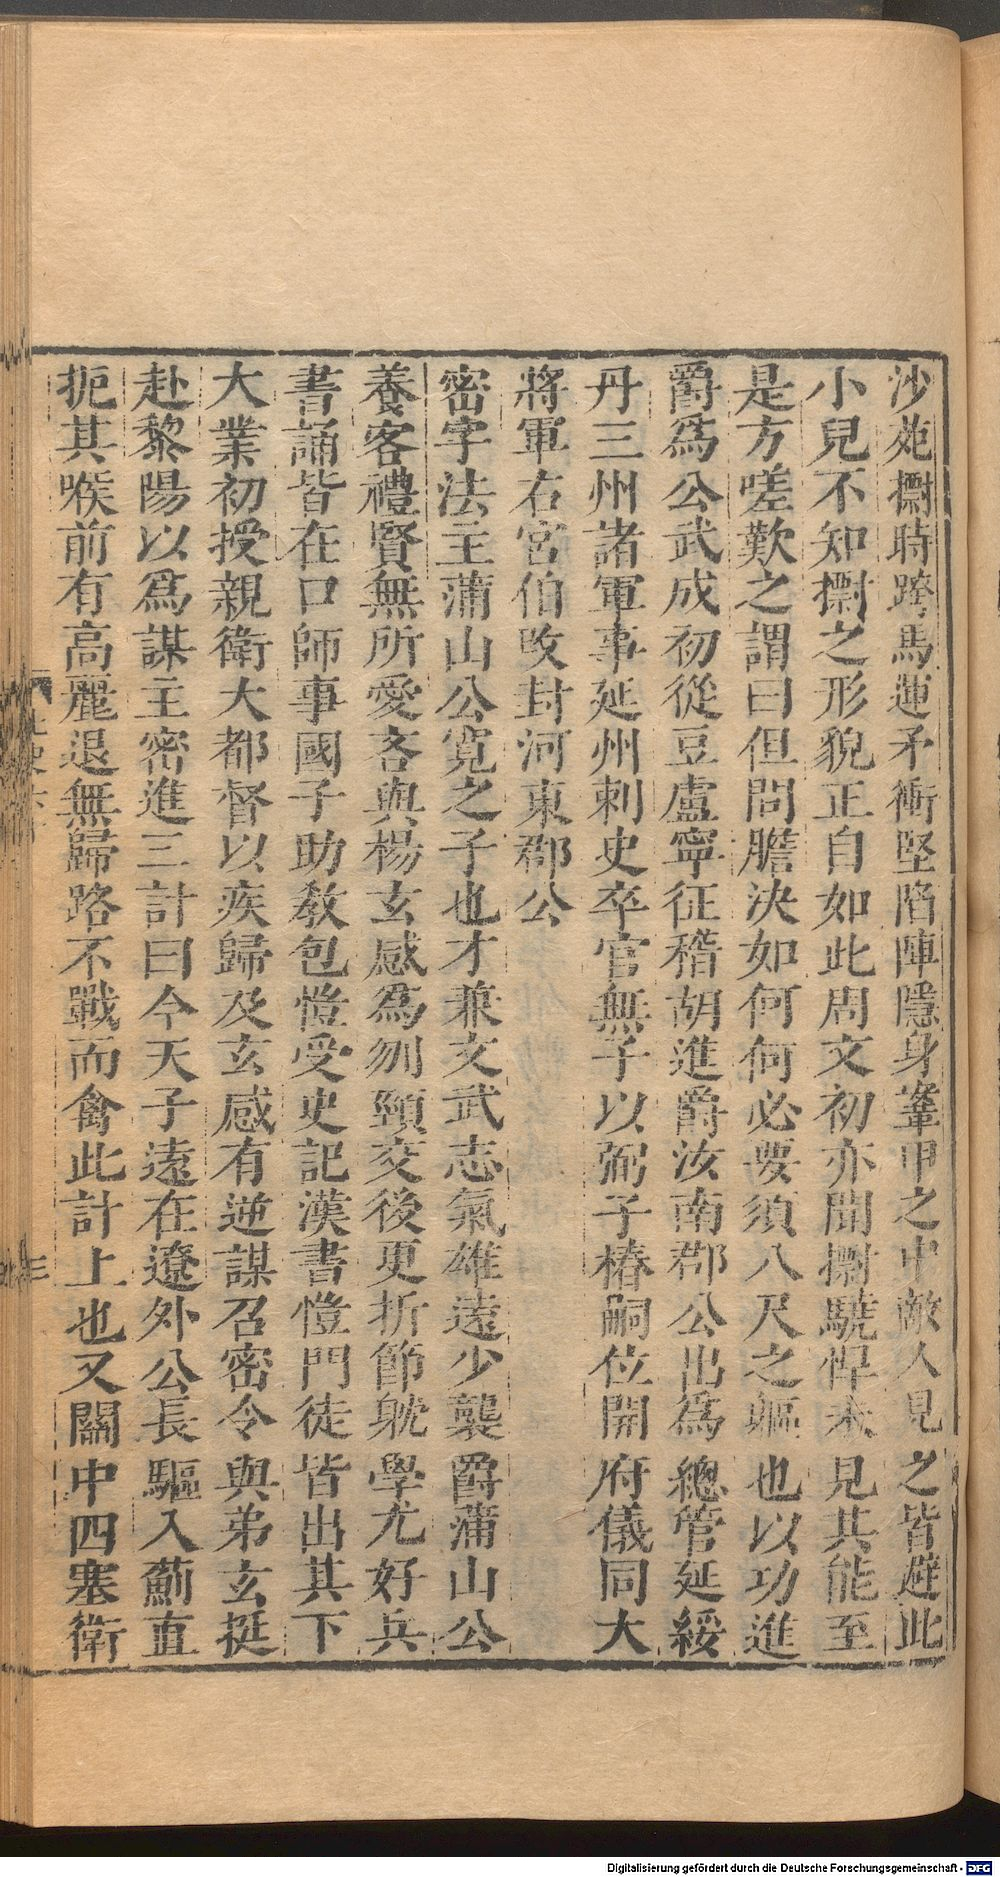 沙苑㯹時跨馬運矛衝堅陷陣隱身鞌甲之中敵人見之皆避此
小兒不知㯹之形貌正自如此周文初亦聞㯹驍悍未見其能至
是方嗟歎之謂曰但問膽決如何何必要須八尺之軀也以功進
爵爲公武成初從豆盧寧征稽胡進爵汝南郡公出爲總管延綏
丹三州諸軍事延州刺史卒官無子以弼子椿嗣位開府儀同大
將軍右宮伯改封河東郡公
密字法主蒲山公寬之子也才兼文武志氣雄遠少襲爵蒲山公
養客禮賢無所愛吝與楊玄感爲刎頸交後更折節躭學尤好兵
書誦皆在口師事國子助教包愷受史記漢書愷門徒皆出其下
大業初授親衛大都督以疾歸及玄感有逆謀召密令與弟玄挺
赴黎陽以爲謀主密進三計曰今天子遠在遼外公長驅入薊直
扼其喉前有高麗退無歸路不戰而禽此計上也又關中四塞衛
三
Digitalisierung gefördert durch die Deutsche Forschungsgemeinschaft - DFG